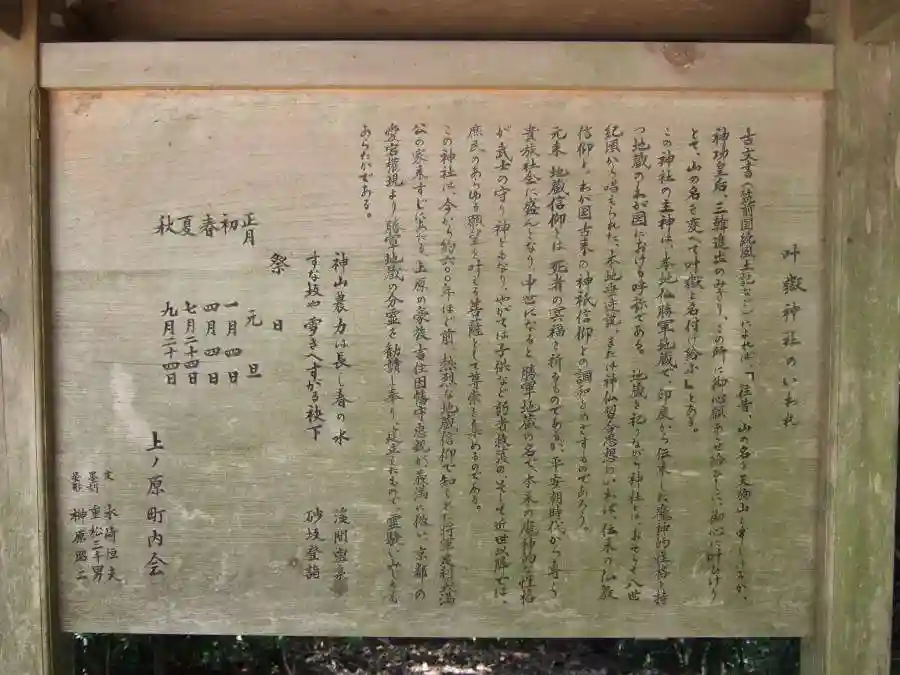 叶嶽神社のいわれ
古文書(筑前国続風土記など)によれば「往昔、山の名を天海山と申しょうか、
神功皇后、三韓進出のみぎり、この所に御心願あらせ給ひしに、御心に叶ひけり
とて、山の名を変へて叶嶽と名付け給ふ」とある。
この神社の主神は、本地仏勝軍地蔵で、印度から伝来した魔神的性格を持
つ地蔵のわが国における呼称である。 地蔵を祀りながら神社とは、おそらく八世
紀頃から唱えられた、本地垂迹説、または神仏習合思想のいわば、伝来の仏教
信仰と、わが国古来の神祇信仰との調和をめざすものであろう。
元来、地蔵信仰とは、死者の冥福を祈るものであるが、平安朝時代から専ら
貴族社会に盛んとなり、中世になると、勝軍地蔵の名で、本来の魔神的な性格
が、武士の守り神ともなり、やがては子供など弱者救済の、そして近世以降では、
庶民のあらゆる願望を叶える菩薩として尊崇を集めるのである。
この神社は、今から約六〇〇年ほど前、熱烈な地蔵信仰で知られた将軍足利義満
公の家来すじに当たる、上原の豪族吉住因幡守忠親が、義満に倣い、京都の
愛宕権現より勝軍地蔵の分霊を勧請し奉り、建立したもので、霊験いみじくも
あらたかである。
神山農力は長し春の水
すな坂や雪きへすがる袂下 砂坂登詣
祭日
正月 元旦
初 一月四日
春 四月四日
夏 七月二十四日
秋 九月二十四日
上ノ原町内会
文 水崎恒夫
墨刻 重松三千男
榊原恕二